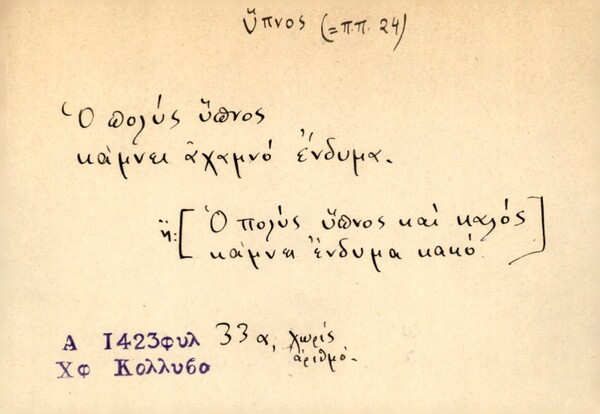 ὕπνος (=π.π. 24)
Ὁ πολύς ὕπνος
κάμνει ἀχαμνό ἔνδυμα.
ἤ: [Ὁ πολύς ὕπνος καί καλός
κάμνει ἔνδυμα κακό]
Α 1423φυλ 33α, χωρίς
ἀριθμό.
Χφ Κολλυβο